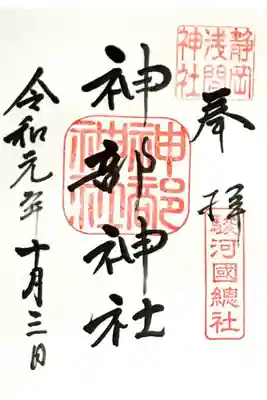 静岡
浅間
神社
奉拝
駿河國總社
神部神社
神部神社
令和元年十月三日